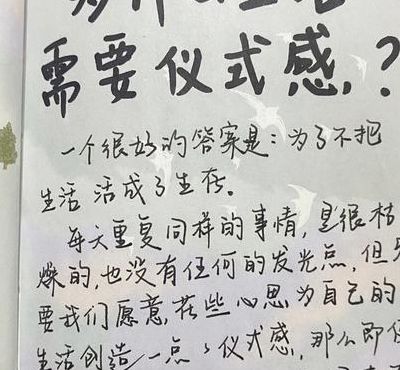 需要仪式感,?
一个很好的答案是：为了不把
生活 活成了生存。
每天重复同样的事情,是很枯
燥的,也没有任何的发光点,但
要我们愿意,花些心思为自己的
生活创造一点、仪式感,那么即使